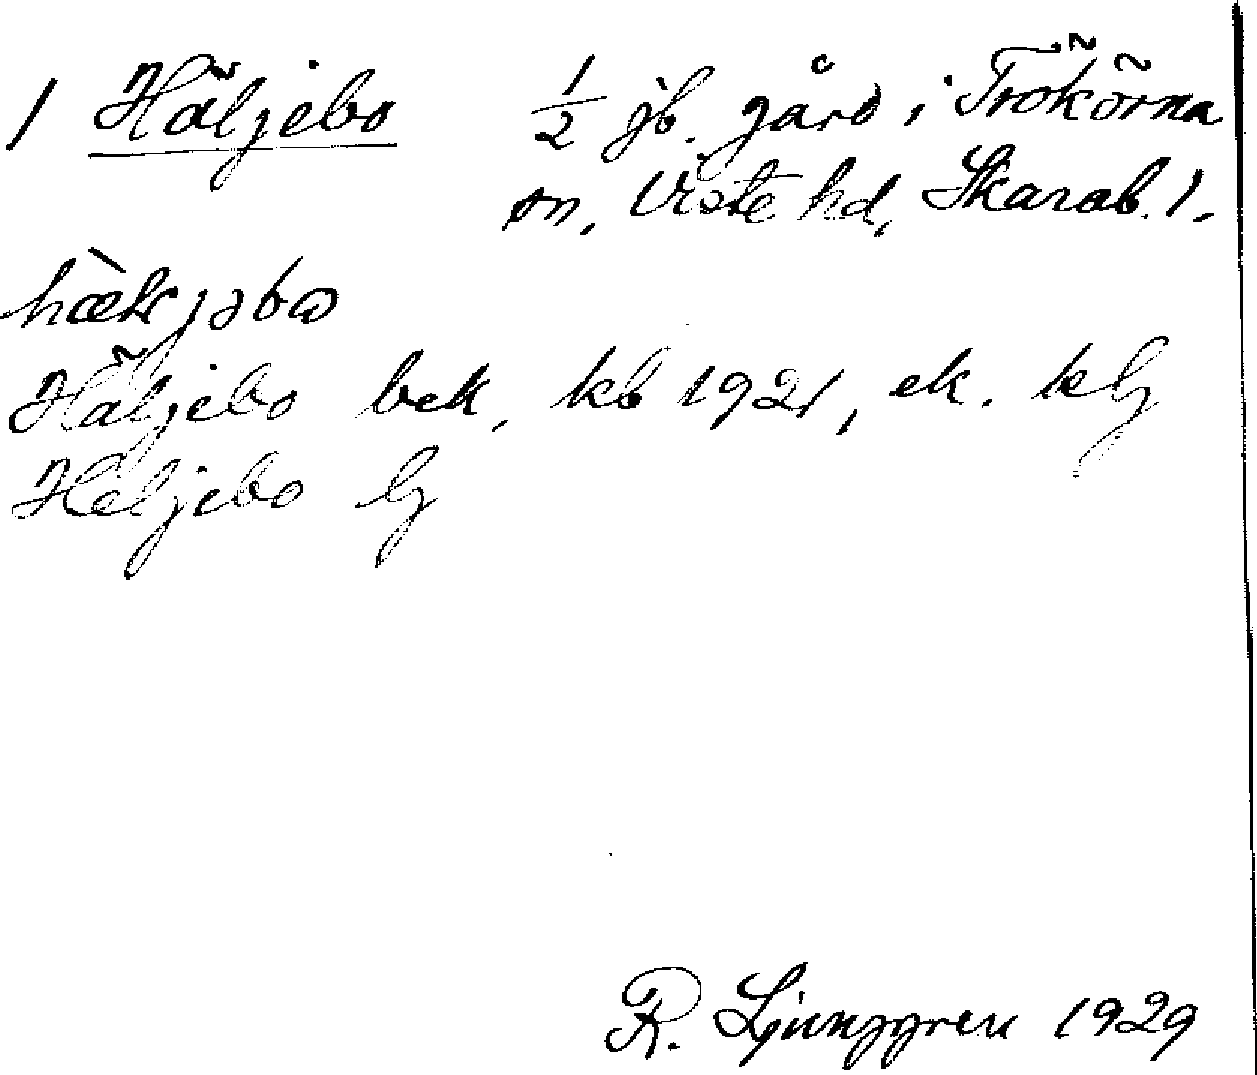 1 Häljebo ½ jb. gård i Trökörna
sn, Viste hd, Skarab. l.
hæljəbω
Häljebo bek. kb 1921, ek. klj
Heljebo lj
R. Ljunggren 1929